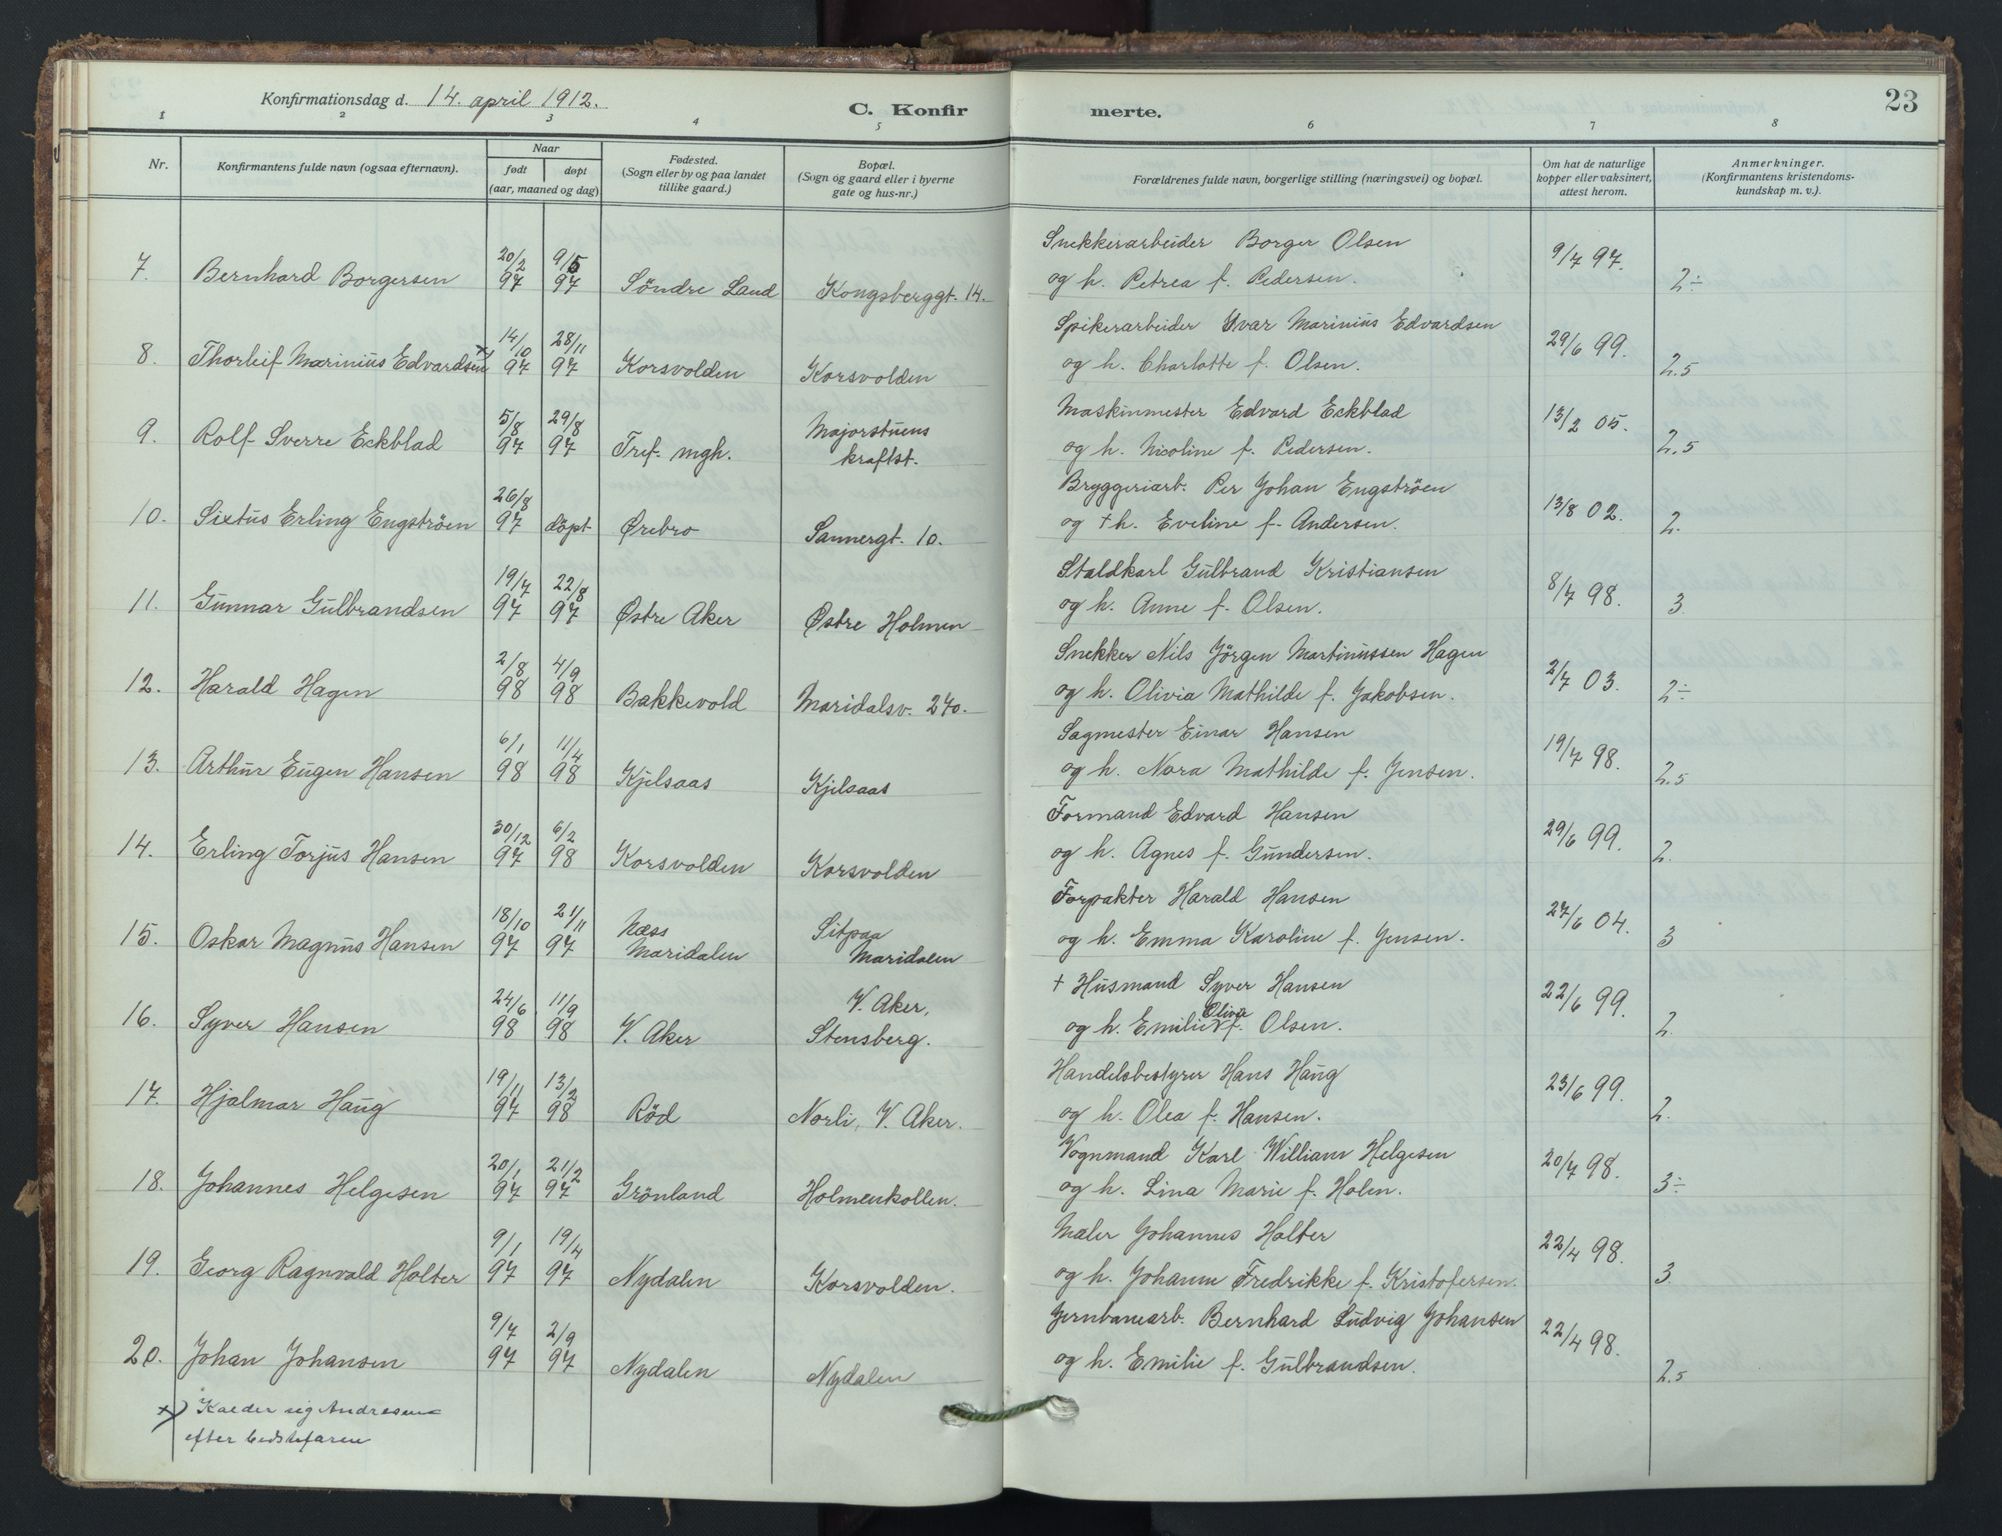 Konfirmationsdag d. 14. april 1912.
C. Konfirmerte.
23
1 2 3 4 5 6 7 8
Nr.
Konfirmantens fulde navn (ogsaa efternavn).
Naar
født døpt
(aar, maaned og dag)
Fødested.
(Sogn eller by og paa landet
tillike gaard.)
Bopæl.
(Sogn og gaard eller i byerne
gate og hus-nr.)
Forældrenes fulde navn, borgerlige stilling (næringsvei) og bopæl.
Om hat de naturlige
kopper eller vaksinert,
attest herom.
Anmerkninger.
(Konfirmantens kristendoms-
kundskap m. v.).
7. Bernhard Borgersen 20/2 97 9/5 97 Söndre Land Kongsberggt. 14. Snekkerarbeider Borger Olsen 9/7 97. 2÷
og h. Petrea f. Pedersen.
8. Thorleif Marinius Edvardsen x) 14/10 97 28/11 97 Korsvolden Korsvolden Spikerarbeider Ivar Marinius Edvardsen 29/6 99. 2.5
og h. Charlotte f. Olsen.
9. Rolf Sverre Eckblad 5/8 97 29/8 97 Tref. mgh. Majorstuens kraftst. Maskinmester Edvard Eckblad 13/2 05. 2.5
og h. Nicoline f. Pedersen.
10. Sixtus Erling Engströen 26/8 97 döpt Ørebro Sannergt. 10. Bryggeriarb. Per Johan Engströen 13/8 02. 2.
og + h. Eveline f. Andersen.
11. Gunnar Gulbrandsen 19/7 97 22/8 97 Østre Aker Østre Holmen Staldkarl Gulbrand Kristiansen 8/7 98. 3
og h. Anne f. Olsen.
12. Harald Hagen 2/8 98 4/9 98 Bakkevold Maridalsv. 270. Snekker Nils Jörgen Martinussen Hagen 2/7 03. 2÷
og h. Olivia Mathilde f. Jakobsen.
13. Arthur Eugen Hansen 6/1 98 11/4 98 Kjelsaas Kjelsaas Sagmester Einar Hansen 19/7 98. 2.5
og h. Nora Mathilde f. Jensen.
14. Erling Torjus Hansen 30/12 97 6/2 98 Korsvolden Korsvolden Formand Edvard Hansen 29/6 99. 2.
og h. Agnes f. Gundersen.
15. Oskar Magnus Hansen 18/10 97 21/11 97 Næss Maridalen Sitpaa Maridalen Forpakter Harald Hansen 27/6 04. 3
og h. Emma Karoline f. Jensen.
16. Syver Hansen 24/6 98 11/9 98 V. Aker V. Aker, Stensberg. + Husmand Syver Hansen 22/6 99. 2.
og h. Emilie Olivia f. Olsen.
17. Hjalmar Haug 19/11 97 13/2 98 Röd Norli, V. Aker. Handelsbestyrer Hans Haug 23/6 99. 2.
og h. Olea f. Hansen.
18. Johannes Helgesen 20/1 97 21/2 97 Grönland Holmenkollen. Vognmand Karl William Helgesen 20/7 98. 3÷
og h. Lina Marie f. Holen.
19. Georg Ragnvald Holter 9/1 97 19/4 97 Nydalen Korsvolden. Maler Johannes Holter 22/4 98. 3
og h. Johanne Fredrikke f. Kristofersen.
20. Johan Johansen 9/7 97 2/9 97 Nydalen Nydalen Jernbanearb. Bernhard Ludvig Johansen 22/4 98. 2.5
og h. Emilie f. Gulbrandsen.
x) Kalder sig Andresen
efter bedstefaren